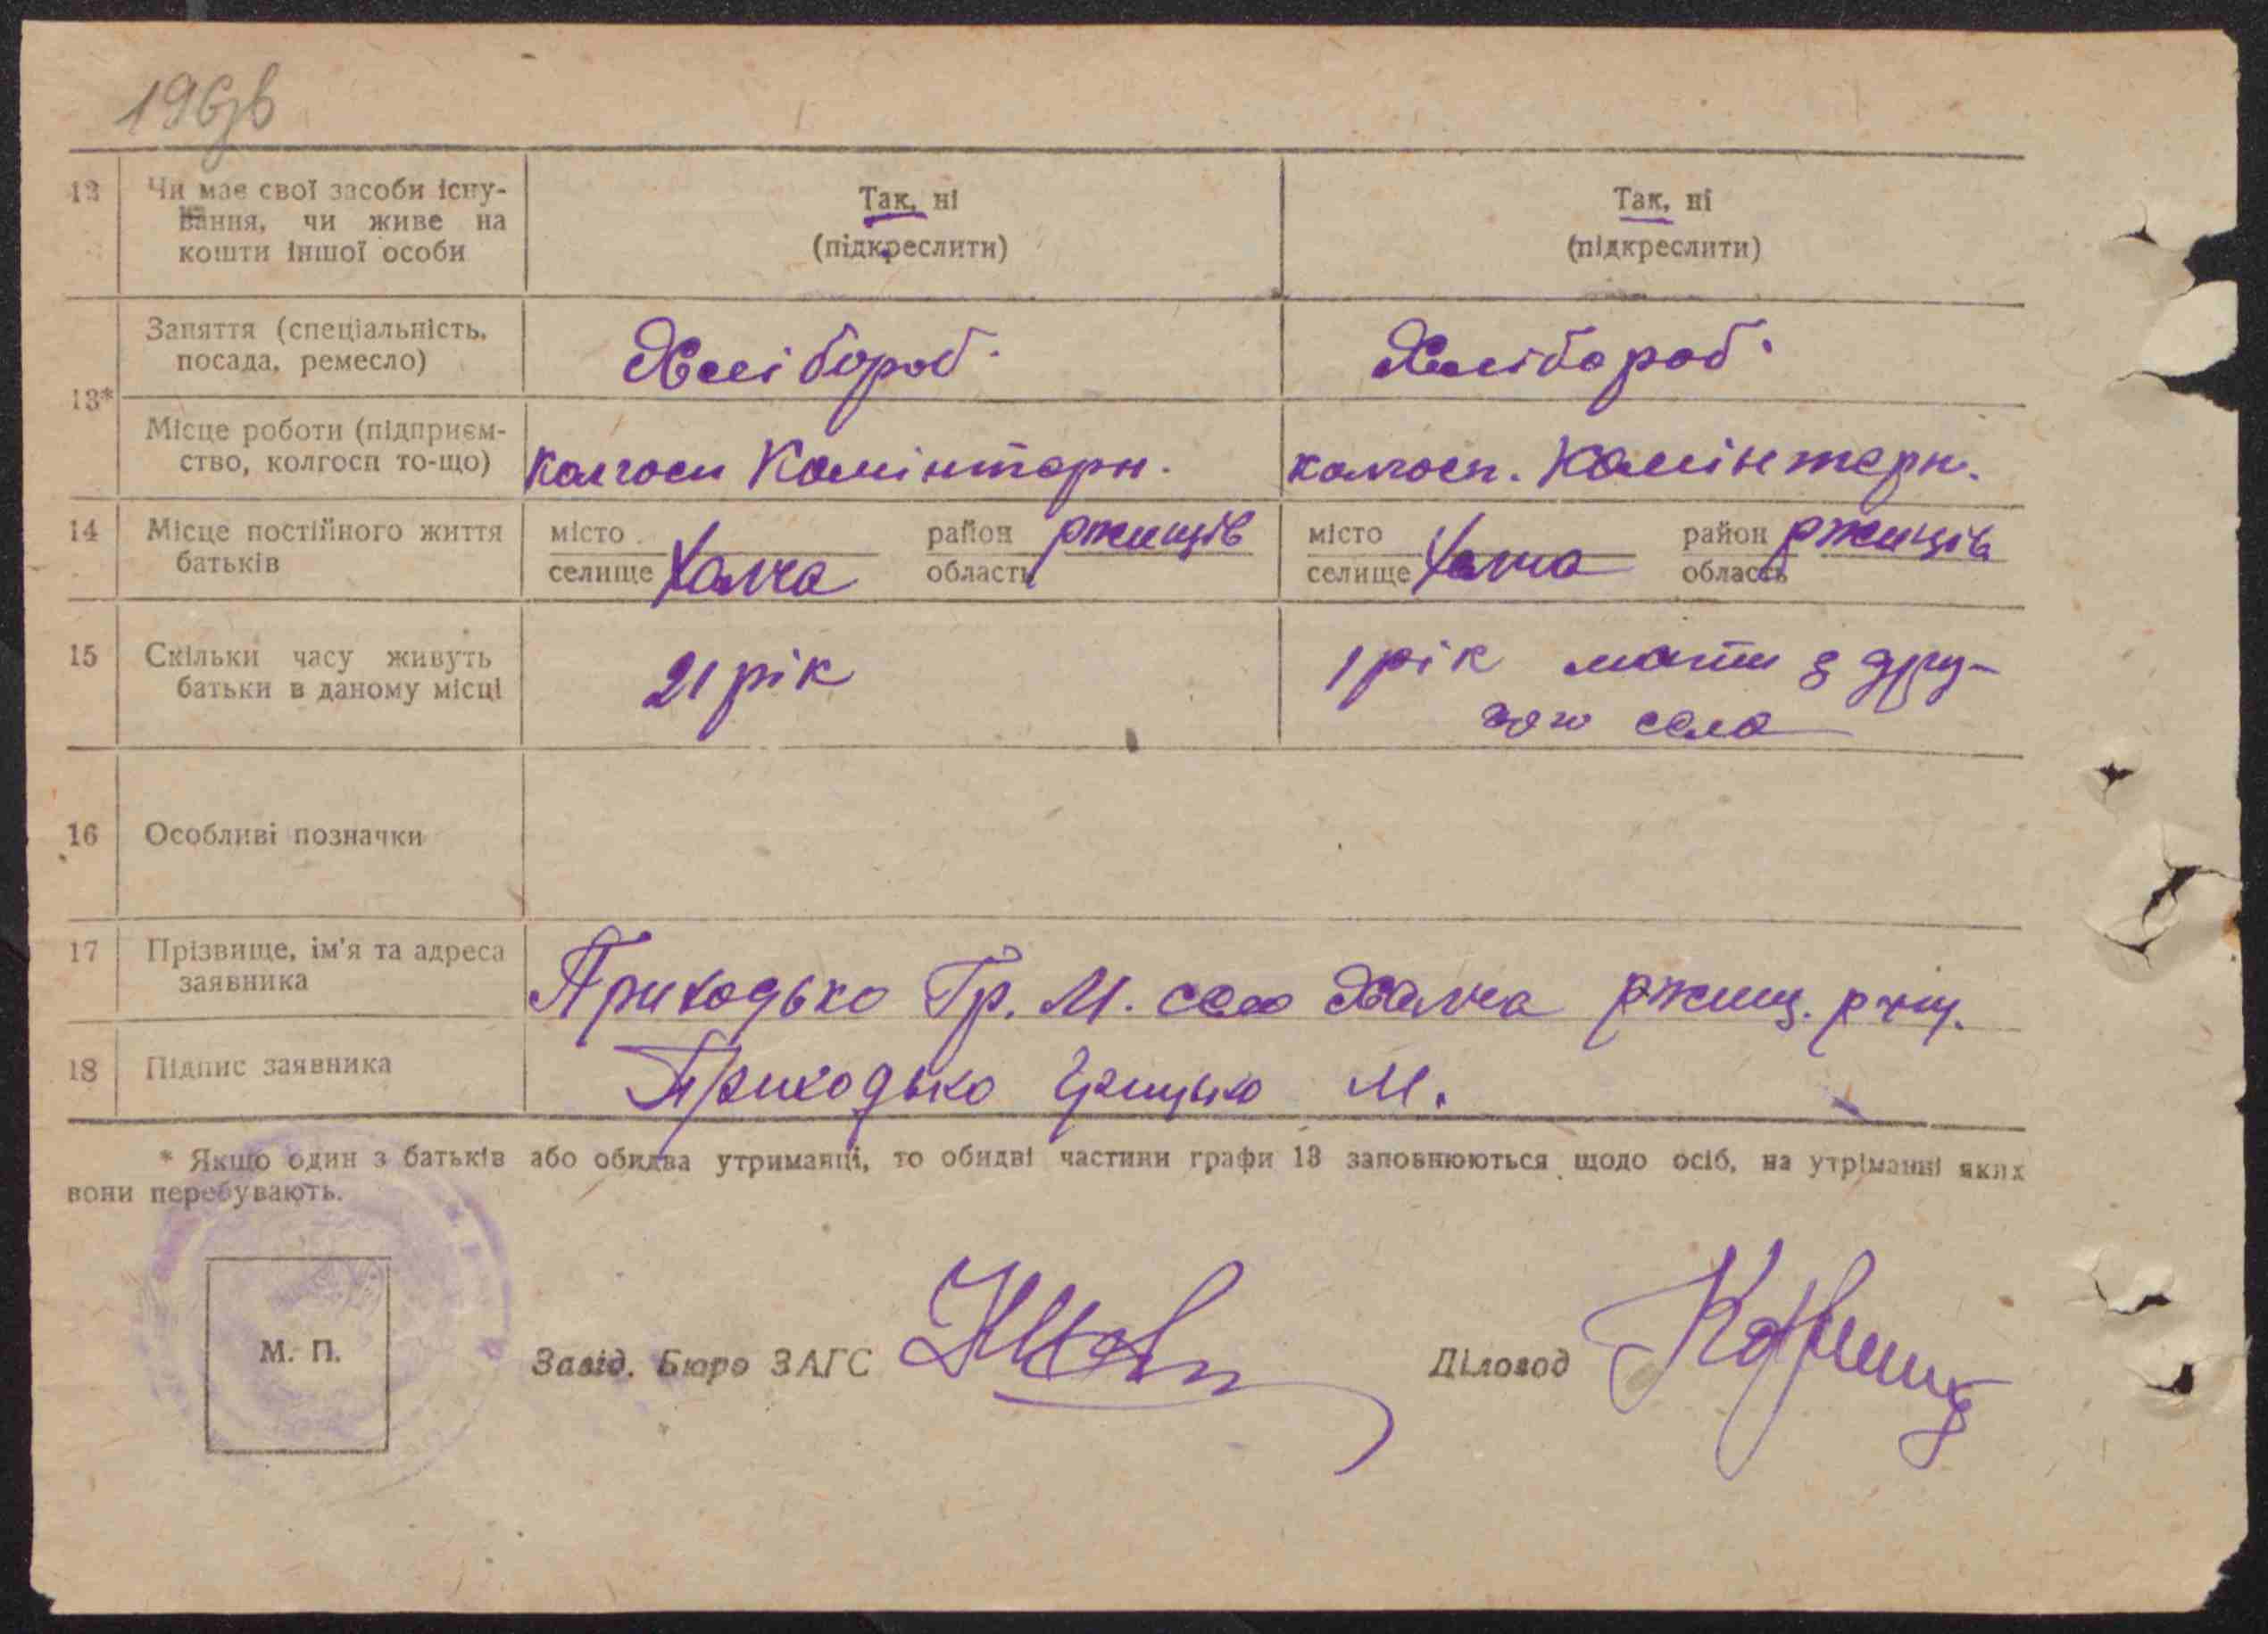 196зв
12 Чи має свої засоби існу- Так, ні Так, ні
вання, чи живе на (підкреслити) (підкреслити)
кошти іншої особи
13* Заняття (спеціальність, Хлібороб. Хлібороб.
посада, ремесло)
Місце роботи (підприєм- колгосп Комінтерн. колгосп. Комінтерн.
ство, колгосп то-що)
14 Місце постійного життя місто район ржищів місто район ржищів
батьків селище Халча область селище Халча область
15 Скільки часу живуть 21 рік 1 рік мати з дру-
батьки в даному місці гого села
16 Особливі позначки
17 Прізвище, ім'я та адреса Приходько Гр. М. село Халча ржищ.
заявника
18 Підпис заявника Приходько Грицько М.
* Якщо один з батьків або обидва утриманці, то обидві частини графи 13 заповнюються щодо осіб, на утріманні яких
вони перебувають.
М. П. Завід. Бюро ЗАГС Діловод